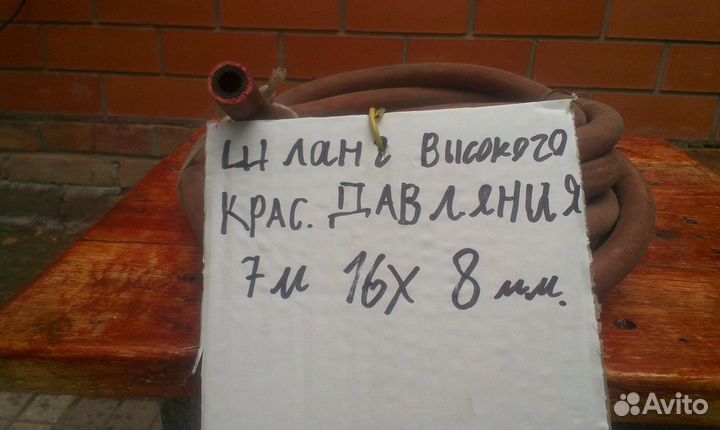 Шланг Високого
Крас. ДАВЛЯНИЯ
7м 16х 8 мм.
Avito